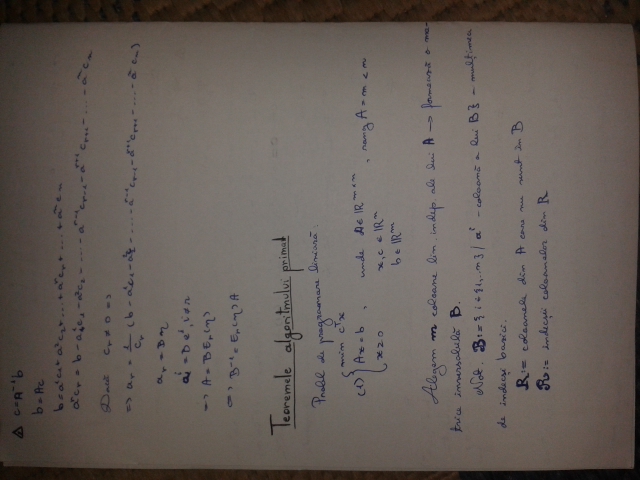 c = A⁻¹b
b = Ac
b = a¹c₁ + a²c₂ + ... + aʳcᵣ + ... + aⁿcₙ
aʳcᵣ = b - a¹c₁ - a²c₂ - ... - aʳ⁻¹cᵣ₋₁ - aʳ⁺¹cᵣ₊₁ - ... - aⁿcₙ
Dacă cᵣ ≠ 0 =>
=> aᵣ = 1/cᵣ (b - a¹c₁ - a²c₂ - ... - aʳ⁻¹cᵣ₋₁ - aʳ⁺¹cᵣ₊₁ - ... - aⁿcₙ)
aᵣ = Bη
aⁱ = Beⁱ, i ≠ r
=> A = BEᵣ(η)
=> B⁻¹ = Eᵣ(η)A
Teoremele algoritmului primal
Probl de programare liniară:
(1) { min cᵀx
Ax = b , unde A ∈ ℝᵐˣⁿ , rang A = m < n
x ≥ 0 x, c ∈ ℝⁿ
b ∈ ℝᵐ
Alegem m coloane lin. indep. ale lui A → formează o ma-
trice inversabilă B.
Not. B := { i ∈ {1,...n} / aⁱ - coloană a lui B } - mulțimea
de indecși bazici.
R := coloanele din A care nu sunt în B
R := indecșii coloanelor din R